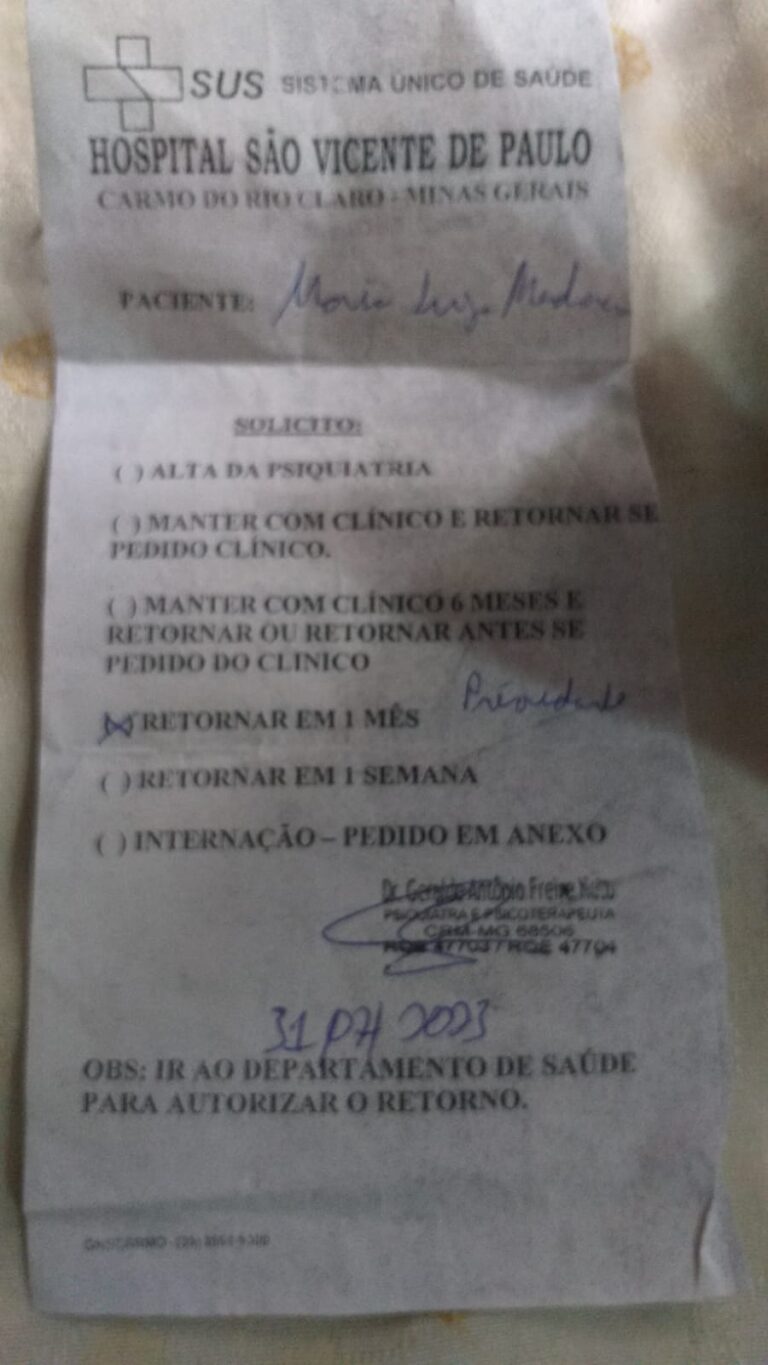 SUS SISTEMA ÚNICO DE SAÚDE
HOSPITAL SÃO VICENTE DE PAULO
CARMO DO RIO CLARO - MINAS GERAIS
PACIENTE: Maria Luiza
SOLICITO:
( ) ALTA DA PSIQUIATRIA
( ) MANTER COM CLÍNICO E RETORNAR SE
PEDIDO CLÍNICO.
( ) MANTER COM CLÍNICO 6 MESES E
RETORNAR OU RETORNAR ANTES SE
PEDIDO DO CLINICO
(X) RETORNAR EM 1 MÊS
( ) RETORNAR EM 1 SEMANA
( ) INTERNAÇÃO – PEDIDO EM ANEXO
Dr. Geraldo Antônio Freire
PSIQUIATRA E PSICOTERAPEUTA
CRM-MG 68506
RQE 47703 / RQE 47704
31 07 2023
OBS: IR AO DEPARTAMENTO DE SAÚDE
PARA AUTORIZAR O RETORNO.